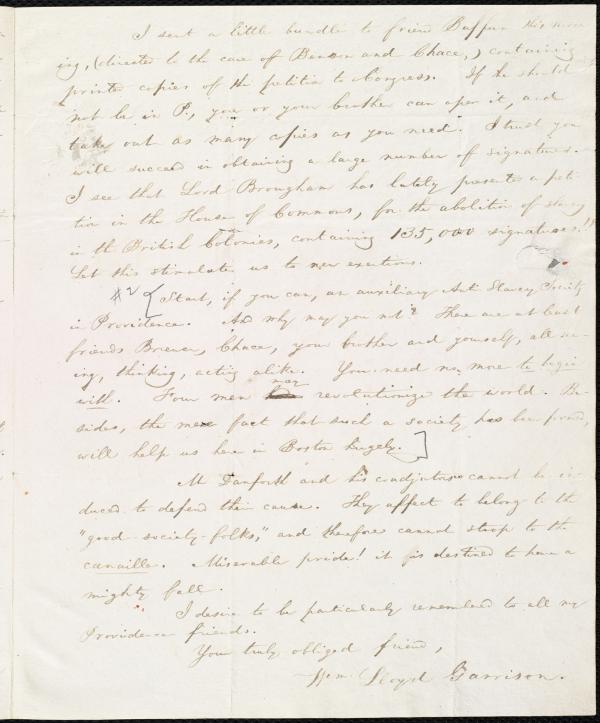 I sent a little bundle to friend Buffum this morn-
ing, (directed to the care of Benson and Chace,) containing
printed copies of the petition to Congress. If he should
not be in P., you or your brother can open it, and
take out as many copies as you need. I trust you
will succeed in obtaining a large number of signatures.
I see that Lord Brougham has lately presented a peti-
tion in the House of Commons, for the abolition of slavery
in the British Colonies, containing 135,000 signatures!!
Let this stimulate us to new exertions.
#2 [Start, if you can, an auxiliary Anti Slavery Society
in Providence. And why may you not? There are at least
friends Brewer, Chace, your brother and yourself, all see-
ing, thinking, acting alike. You need no more to begin
with. Four men may revolutionize the world. Be-
sides, the mere fact that such a society has been formed,
will help us here in Boston hugely.]
Mr Danforth and his coadjutors cannot be in-
duced to defend their cause. They affect to belong to the
"good-society-folks," and therefore cannot stoop to the
canaille. Miserable pride! it is destined to have a
mighty fall.
I desire to be particularly remembered to all my
Providence friends.
Your truly obliged friend,
Wm. Lloyd Garrison.